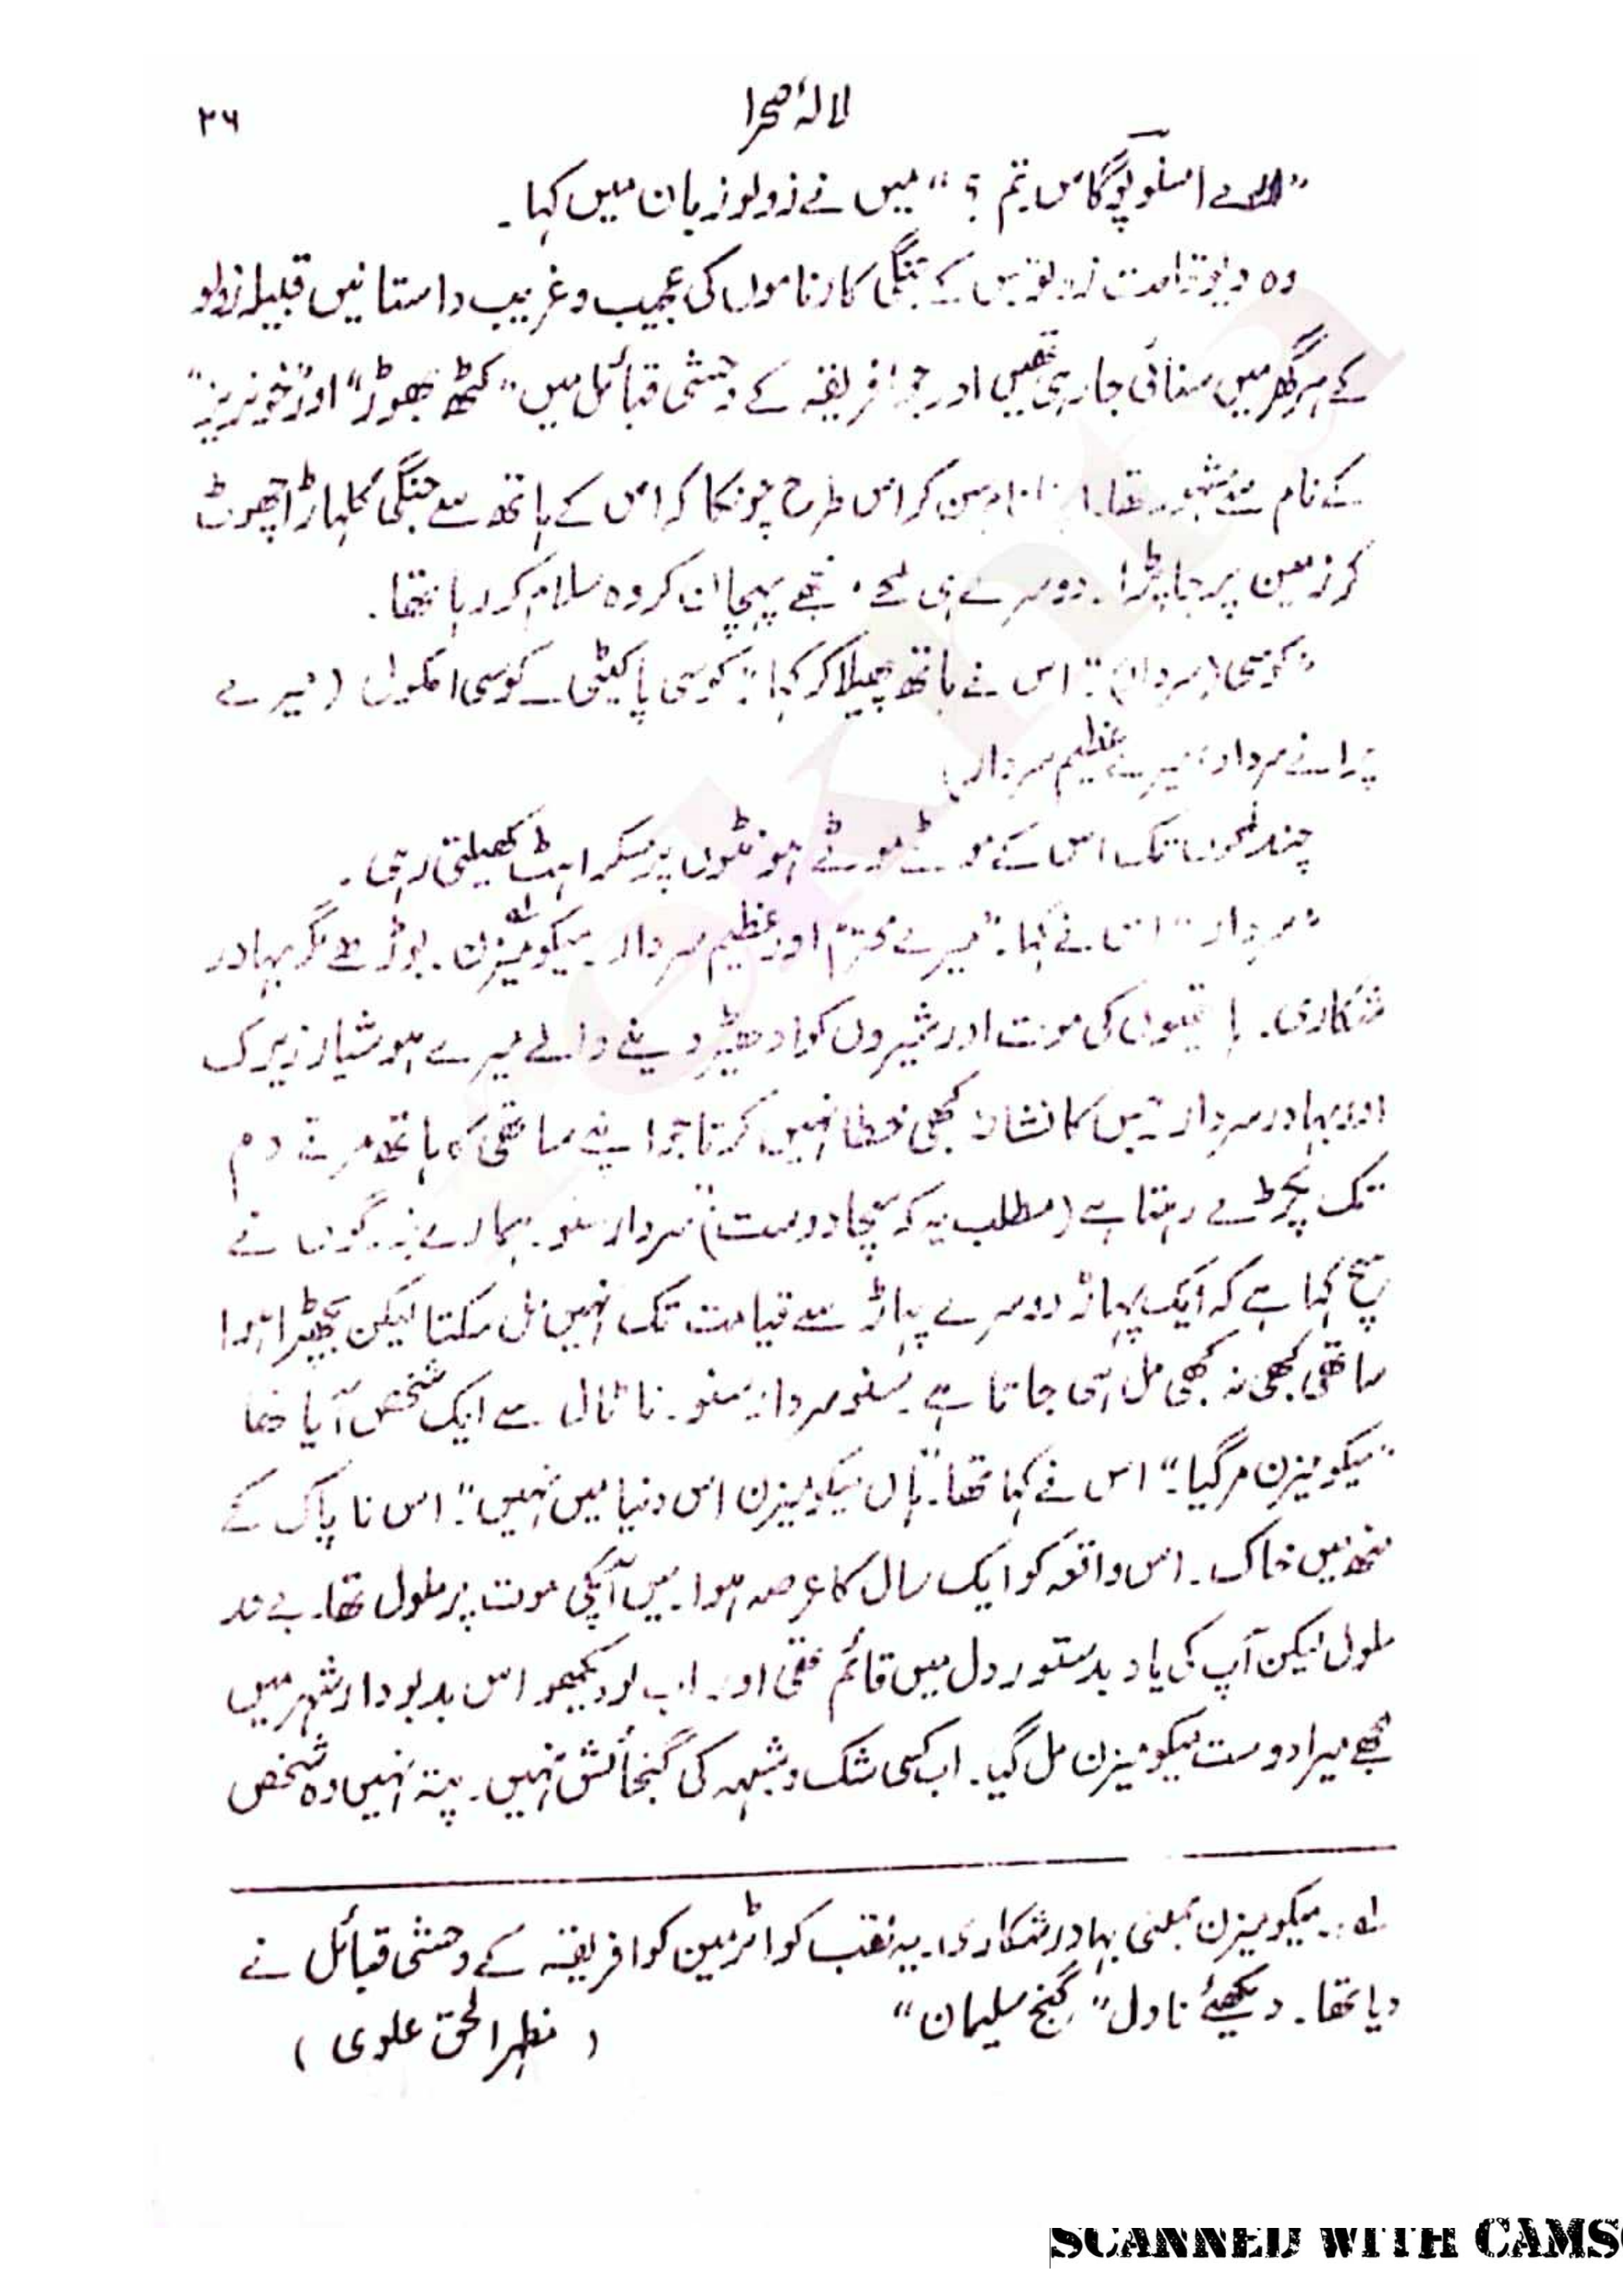 لالۂ صحرا
۲۶
”ارے امسلوپوگاس تم ؟“ میں نے زولو زبان میں کہا۔
وہ دیو قامت زولو جس کے جنگی کارناموں کی عجیب و غریب داستانیں قبیلہ زولو
کے ہر گھر میں سنائی جا رہی تھیں اور جو افریقہ کے وحشی قبائل میں ”کٹھ پھوڑ“ اور ”خونریز“
کے نام سے مشہور تھا۔ سن کر اس طرح چونکا کہ اس کے ہاتھ سے جنگی کلہاڑا چھوٹ
کر زمین پر جا پڑا۔ دوسرے ہی لمحے مجھے پہچان کر وہ سلام کر رہا تھا۔
”کوسی (سردار)“۔ اس نے ہاتھ پھیلا کر کہا: ”کوسی پاکیٹی۔ کوسی امکول (میرے
پرانے سردار، میرے عظیم سردار)
چند لمحوں تک اس کے موٹے موٹے ہونٹوں پر مسکراہٹ کھیلتی رہی۔
”سردار“ اس نے کہا۔ ”میرے محترم اور عظیم سردار۔ میکومیزن ؎۱۔ بوڑھے مگر بہادر
شکاری۔ ہاتھیوں کی موت اور شیروں کو ادھیڑ دینے والے میرے ہوشیار زیرک
اور بہادر سردار جس کا نشانہ کبھی خطا نہیں کرتا جو اپنے ساتھی کا ہاتھ مرتے دم
تک پکڑے رہتا ہے (مطلب یہ کہ سچا دوست) سردار سنو۔ ہمارے بزرگوں نے
سچ کہا ہے کہ ایک پہاڑ دوسرے پہاڑ سے قیامت تک نہیں مل سکتا لیکن بچھڑا ہوا
ساتھی کبھی نہ کبھی مل ہی جاتا ہے۔ سنو سردار سنو۔ ناٹال سے ایک شخص آیا تھا
”میکومیزن مر گیا“۔ اس نے کہا تھا۔ ”ہاں میکومیزن اس دنیا میں نہیں“۔ اس ناپاک کے
منھ میں خاک۔ اس واقعہ کو ایک سال کا عرصہ ہوا۔ میں آپکی موت پر ملول تھا۔ بے حد
ملول لیکن آپ کی یاد بدستور دل میں قائم تھی اور اب لو دیکھو اس بدبودار شہر میں
مجھے میرا دوست میکومیزن مل گیا۔ اب کسی شک و شبہہ کی گنجائش نہیں۔ پتہ نہیں وہ شخص
؎۱:۔ میکومیزن بمعنی بہادر شکاری۔ یہ لقب کواٹرمین کو افریقہ کے وحشی قبائل نے
دیا تھا۔ دیکھئے ناول ”گنج سلیمان“ (مظہر الحق علوی)
SCANNED WITH CAMS